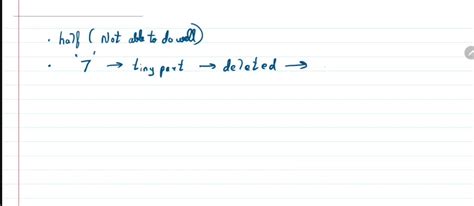 · half ( Not able to do well)
· '7' → tiny part → deleted →